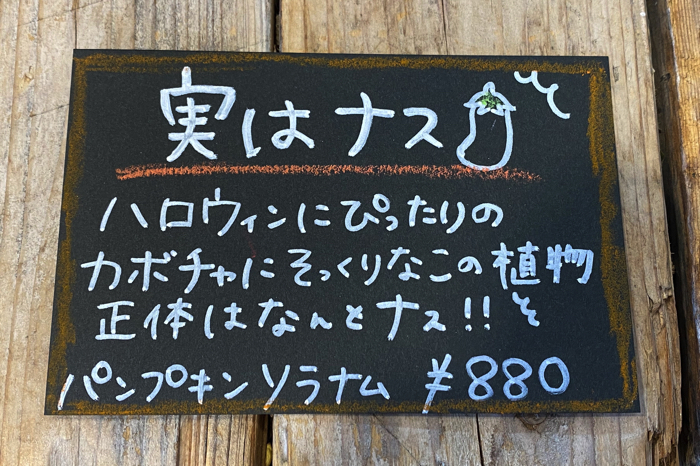 実はナス
ハロウィンにぴったりの
カボチャにそっくりなこの植物
正体はなんとナス!!
パンプキンソラナム ¥880